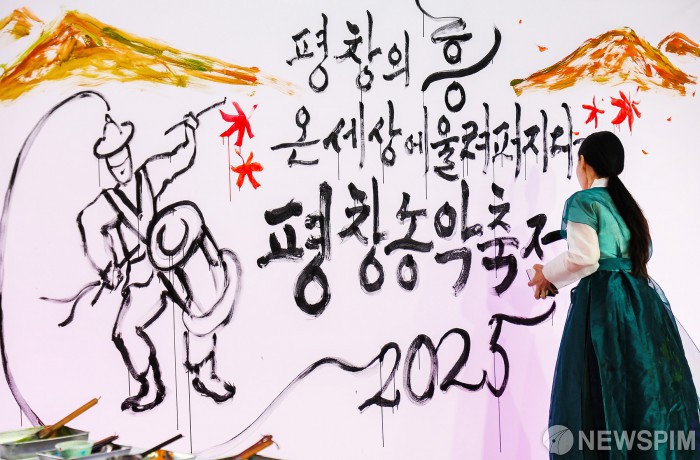 평창의 흥
온 세상에 울려퍼지다
평창농악축제
2025
NEWSPIM